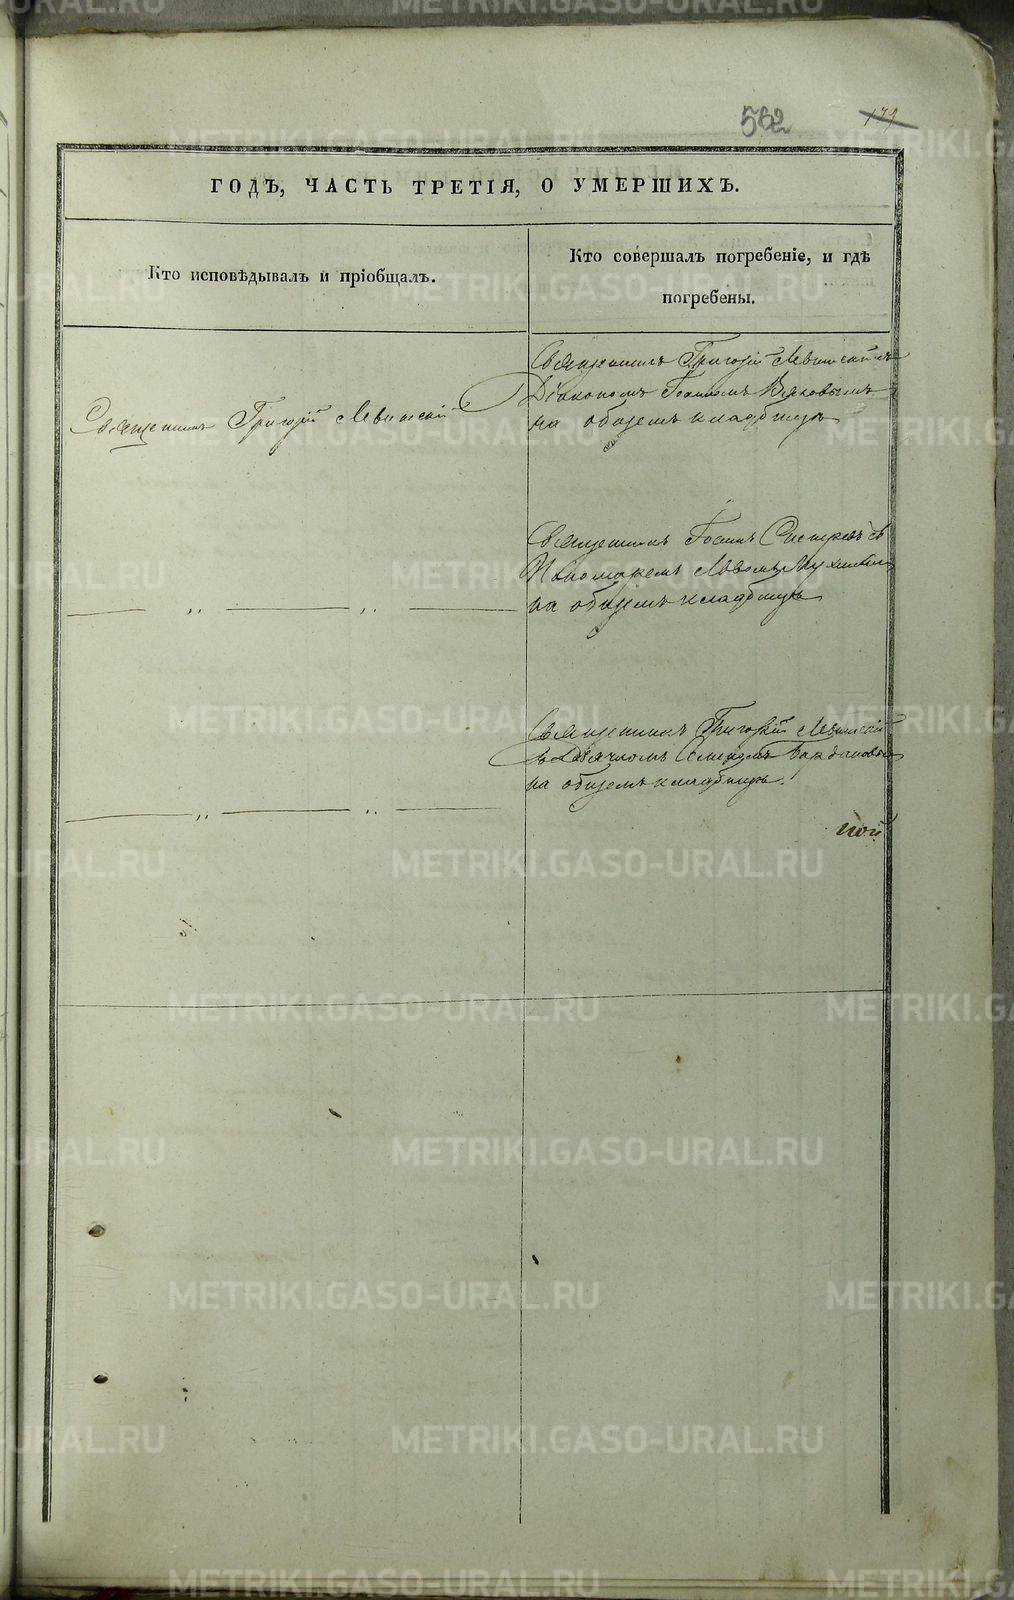 562
179
ГОДЪ, ЧАСТЬ ТРЕТІЯ, О УМЕРШИХЪ.
Кто исповѣдывалъ и пріобщалъ.
Кто совершалъ погребеніе, и гдѣ
погребены.
Священникъ Григорій Левитскій съ
Діакономъ Іоанномъ
на общемъ кладбищѣ
Священникъ Григорій Левитскій
Священникъ Іоаннъ съ
Пономаремъ Львомъ
на общемъ кладбищѣ
Священникъ Григорій Левитскій
съ Дьячкомъ
на общемъ кладбищѣ.
METRIKI.GASO-URAL.RU